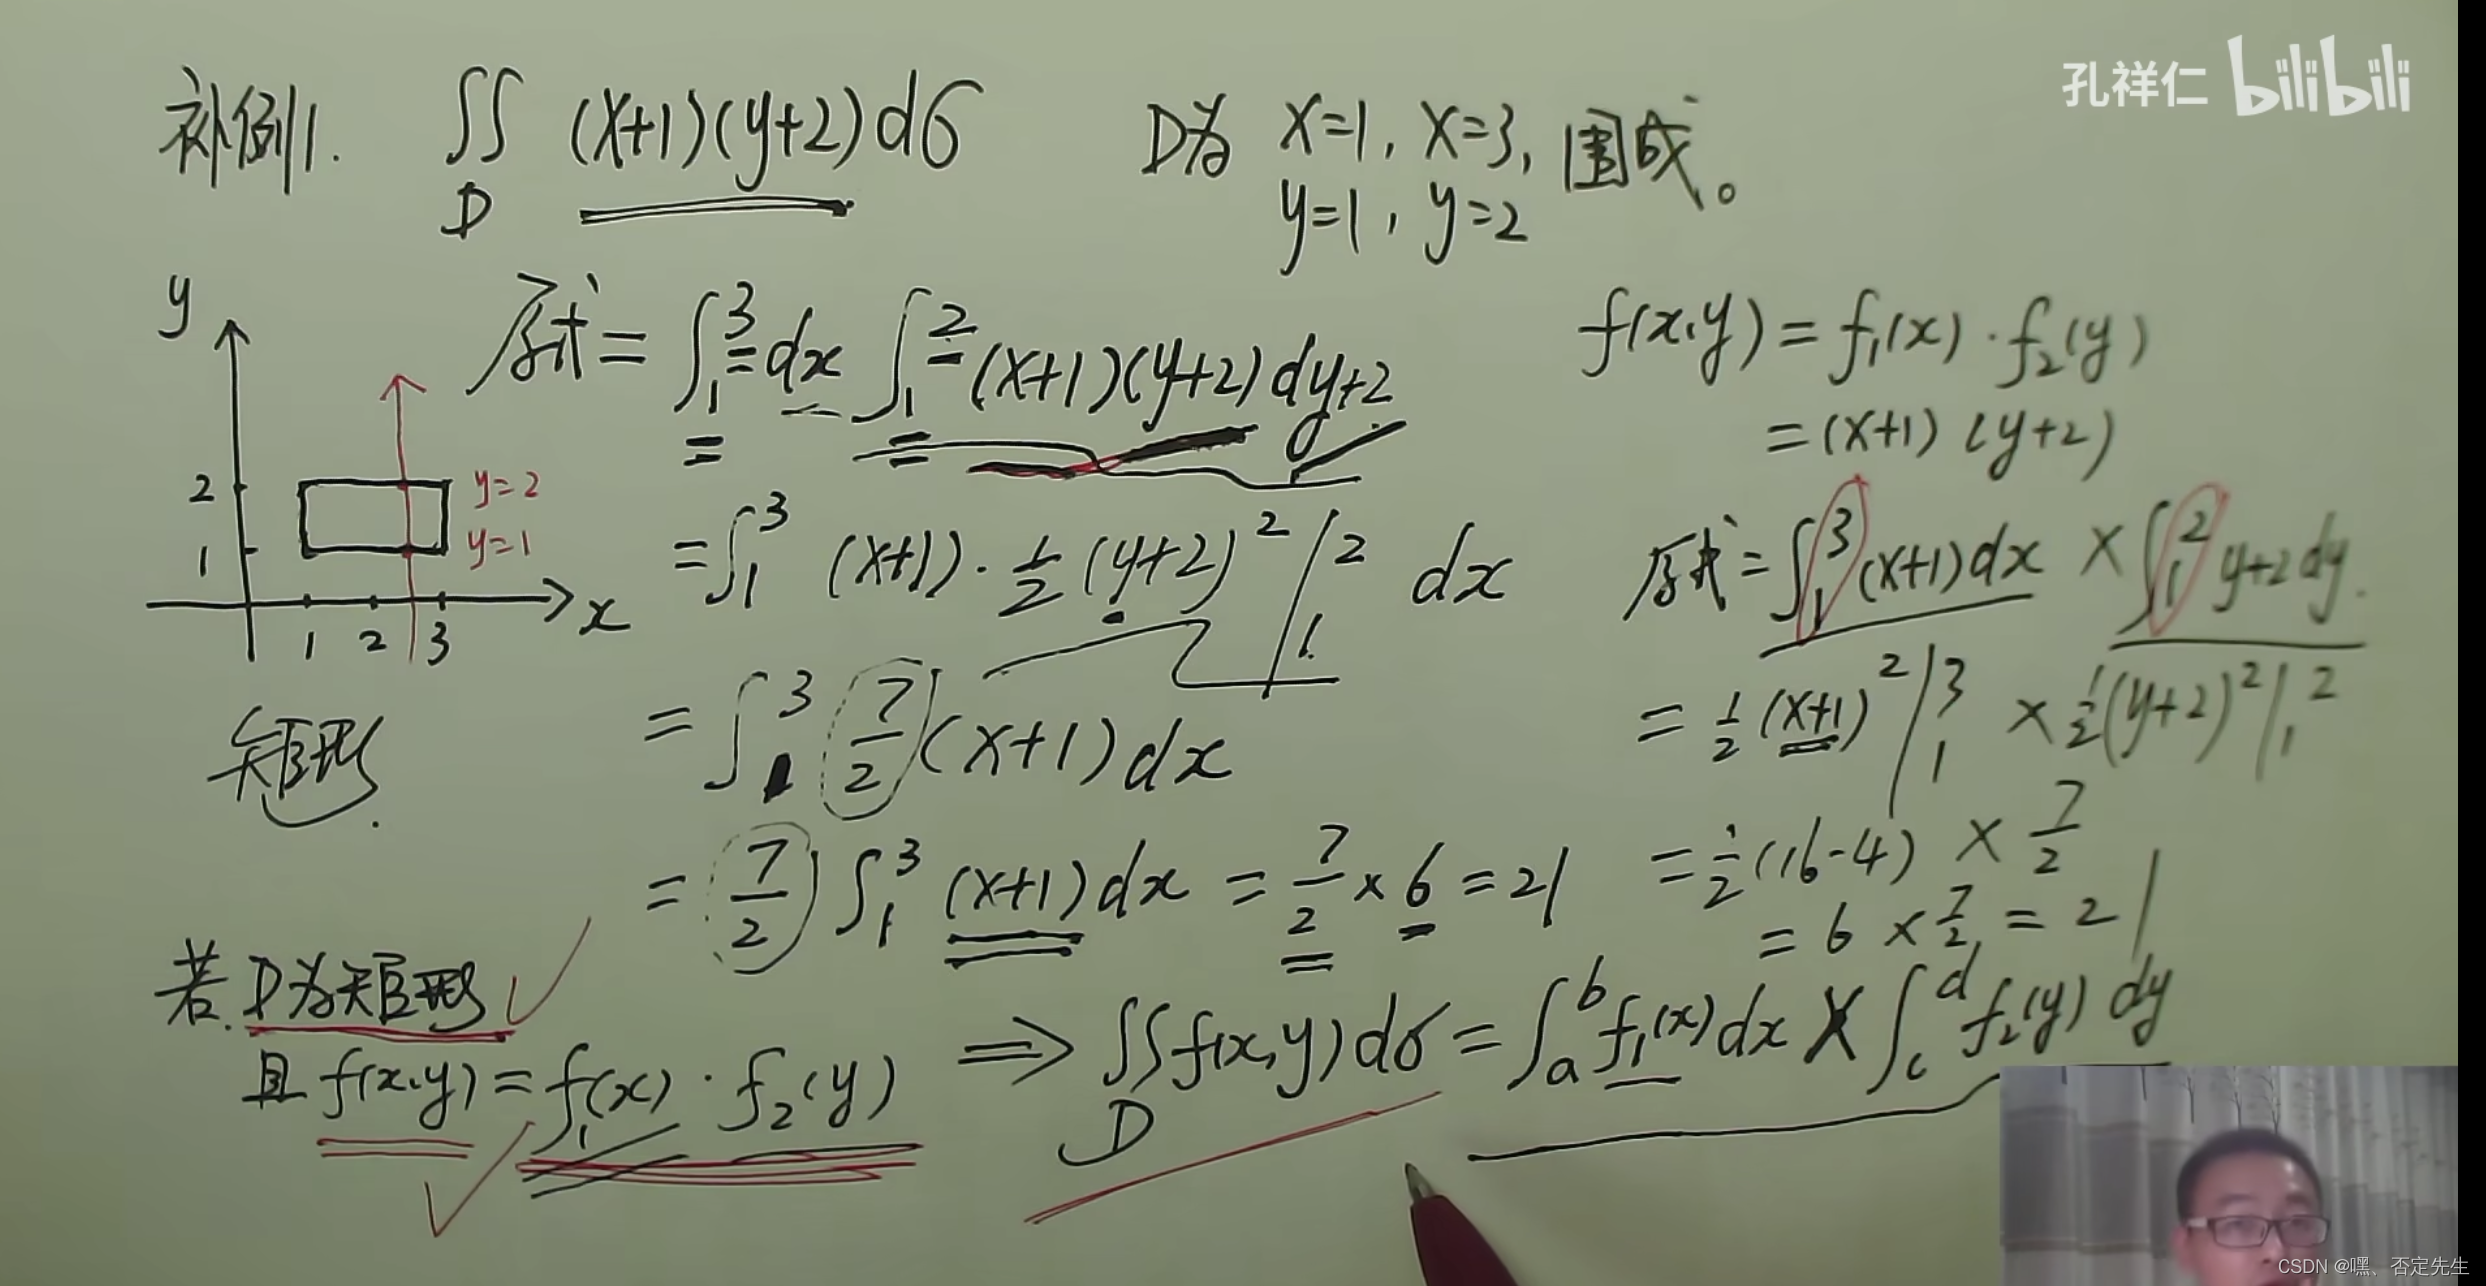 孔祥仁 bilibili
补例1. ∬ (x+1)(y+2)dσ D为 x=1, x=3, 围成。
D y=1, y=2
y
原式 = ∫₁³ dx ∫₁² (x+1)(y+2)dy+2
y
= ∫₁³ (x+1)·1/2(y+2)²|₁² dx
2 y=2
1 y=1
1 2 3 x
矩形.
= ∫₁³ 7/2 (x+1)dx
= 7/2 ∫₁³ (x+1)dx = 7/2 × 6 = 21
f(x,y) = f₁(x)·f₂(y)
= (x+1)(y+2)
原式 = ∫₁³ (x+1)dx × ∫₁² y+2dy.
= 1/2 (x+1)²|₁³ × 1/2(y+2)²|₁²
= 1/2 (16-4) × 7/2
= 6 × 7/2 = 21
若.D为矩形
且 f(x,y) = f₁(x)·f₂(y) ⇒ ∬ f(x,y)dσ = ∫ₐᵇ f₁(x)dx × ∫꜀ᵈ f₂(y)dy
D
CSDN @嘿、否定先生